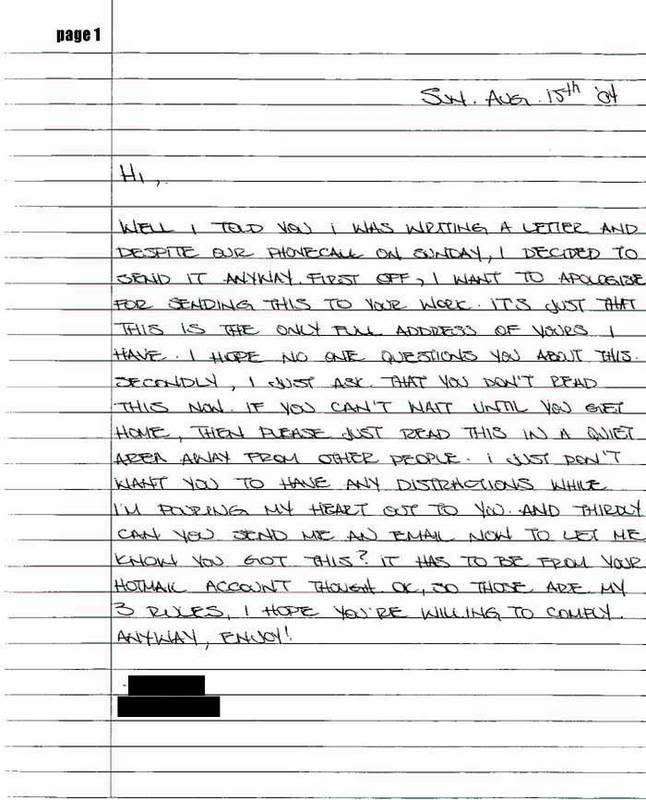 page 1
SUN. AUG. 15th '04
HI,
WELL I TOLD YOU I WAS WRITING A LETTER AND
DESPITE OUR PHONECALL ON SUNDAY, I DECIDED TO
SEND IT ANYWAY. FIRST OFF, I WANT TO APOLOGISE
FOR SENDING THIS TO YOUR WORK. IT'S JUST THAT
THIS IS THE ONLY FULL ADDRESS OF YOURS I
HAVE. I HOPE NO ONE QUESTIONS YOU ABOUT THIS.
SECONDLY, I JUST ASK THAT YOU DON'T READ
THIS NOW. IF YOU CAN'T WAIT UNTIL YOU GET
HOME, THEN PLEASE JUST READ THIS IN A QUIET
AREA AWAY FROM OTHER PEOPLE. I JUST DON'T
WANT YOU TO HAVE ANY DISTRACTIONS WHILE
I'M POURING MY HEART OUT TO YOU. AND THIRDLY
CAN YOU SEND ME AN EMAIL NOW TO LET ME
KNOW YOU GOT THIS? IT HAS TO BE FROM YOUR
HOTMAIL ACCOUNT THOUGH. OK, SO THOSE ARE MY
3 RULES, I HOPE YOU'RE WILLING TO COMPLY.
ANYWAY, ENJOY!